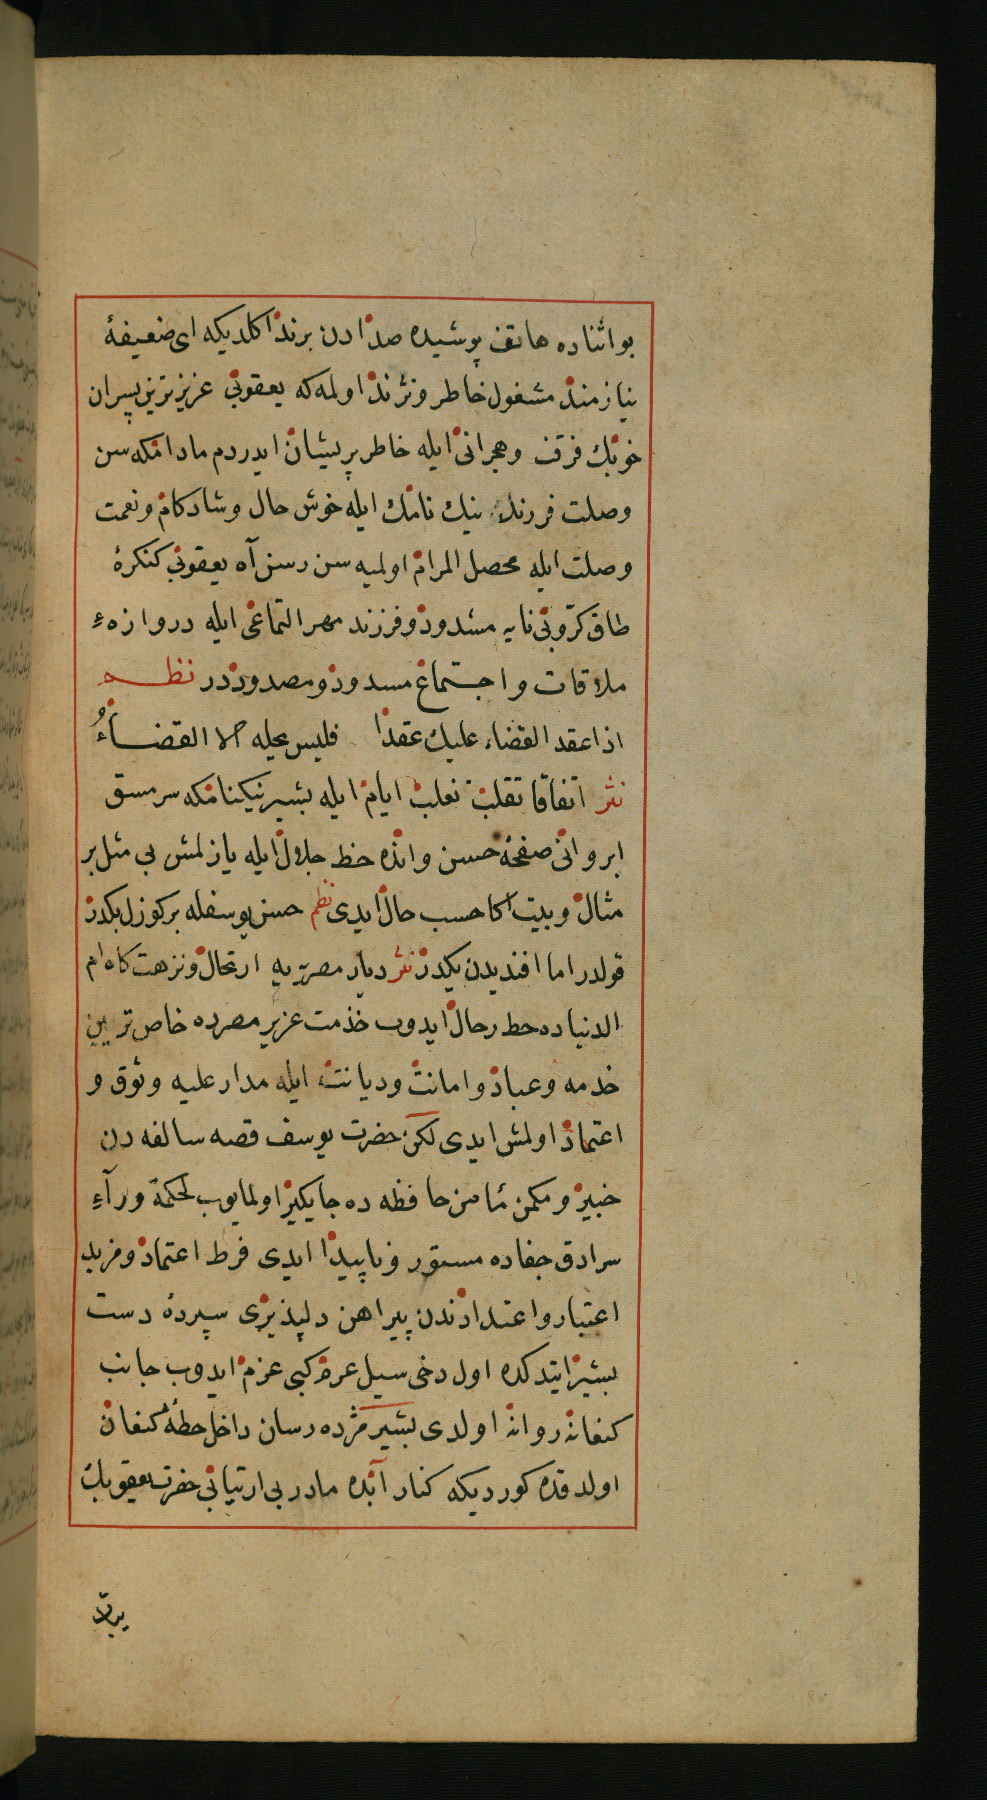 بو اثناده هاتف پوشیده صدادن برندا کلدیکه ای ضعیفهٔ
نیازمند مشغول خاطر ونژند اولمه که یعقوبی عزیزترین پسران
خوبک فرقت وهجرانی ایله خاطر پریشان ایدردم مادامکه سن
وصلت فرزند نیک نامک ایله خوش حال وشادکام ونعمت
وصلت ایله محصل المرام اولمیه سن رسن آه یعقوبی کنکرهٔ
طاق کروبی نایه مشدود وفرزند مهر التماعی ایله دروازهٔ
ملاقات واجتماع مسدود ومصدوددر نظم
اذا عقد القضاء علیک عقدا فلیس یحله الا القضاء
نثر اتفاقا تقلب تغلب ایام ایله بشیر نیکنامکه سرمشق
ابروانی صفحهٔ حسن وانده خط جلال ایله یازلمش بی مثل بر
مثال وبیت اکا حسب حال ایدی نظم حسن یوسفله برکوزل بکدر
قولدر اما افندیدن یکدر نثر دیار مصریه ارتحال ونزهتکاه ام
الدنیاده حط رحال ایدوب خدمت عزیز مصرده خاص ترین
خدمه وعباد وامانت ودیانت ایله مدار علیه وثوق و
اعتماد اولمش ایدی لکن حضرت یوسف قصه سالفه دن
خبیر ومکمن مأمن حافظه ده جایکیر اولمایوب لحکمة ورآءِ
سرادق جفاده مستور وناپیدا ایدی فرط اعتماد ومزید
اعتبار واعتدادندن پیراهن دلپذیری سپردهٔ دست
بشیر ایتدکده اول دخی سیل عرم کبی عزم ایدوب جانب
کنعانه روانه اولدی بشیر مژده رسان داخل حطهٔ کنعان
اولدقده کوردیکه کنار آبده مادر بی ارتیابی حضرت یعقوبک